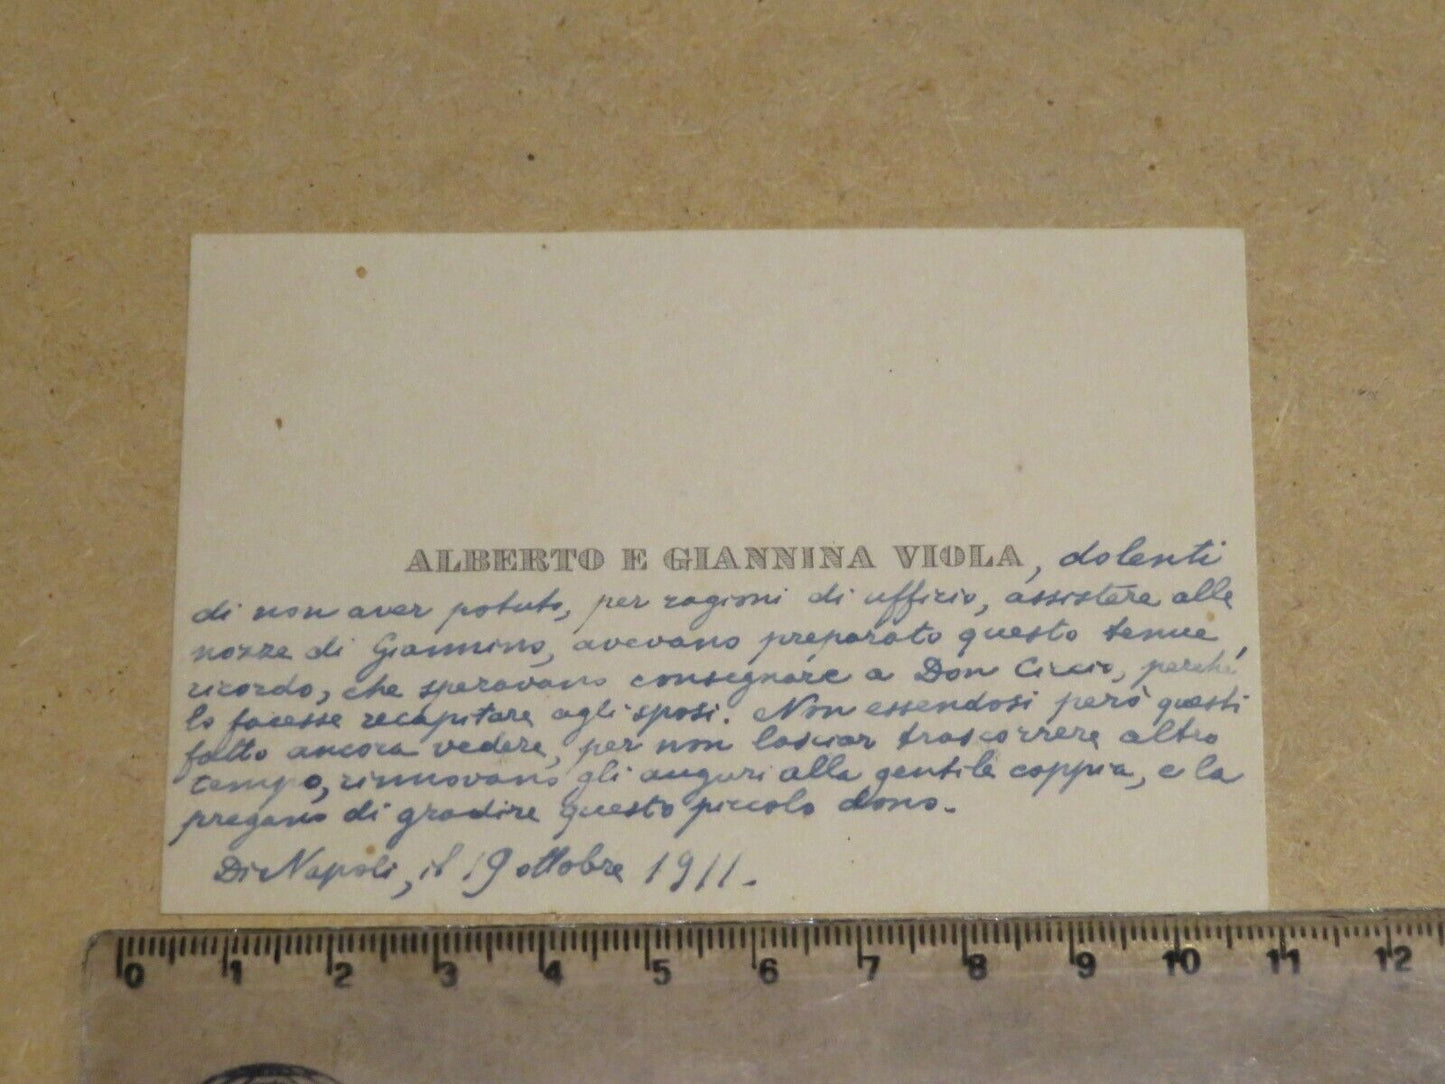 ALBERTO E GIANNINA VIOLA, dolenti
di non aver potuto, per ragioni di ufficio, assistere alle
nozze di Giannino, avevano preparato questo tenue
ricordo, che speravano consegnare a Don Ciccio, perché
lo facesse recapitare agli sposi. Non essendosi però questi
fatto ancora vedere, per non lasciar trascorrere altro
tempo, rinnovano gli auguri alla gentile coppia, e la
pregano di gradire questo piccolo dono.
Di Napoli, il 19 ottobre 1911.
0 1 2 3 4 5 6 7 8 9 10 11 12